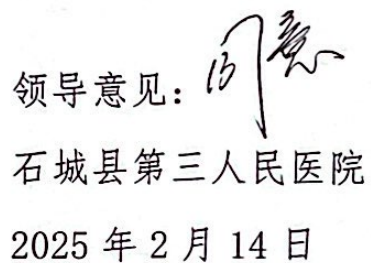 领导意见：同意
石城县第三人民医院
2025 年 2 月 14 日